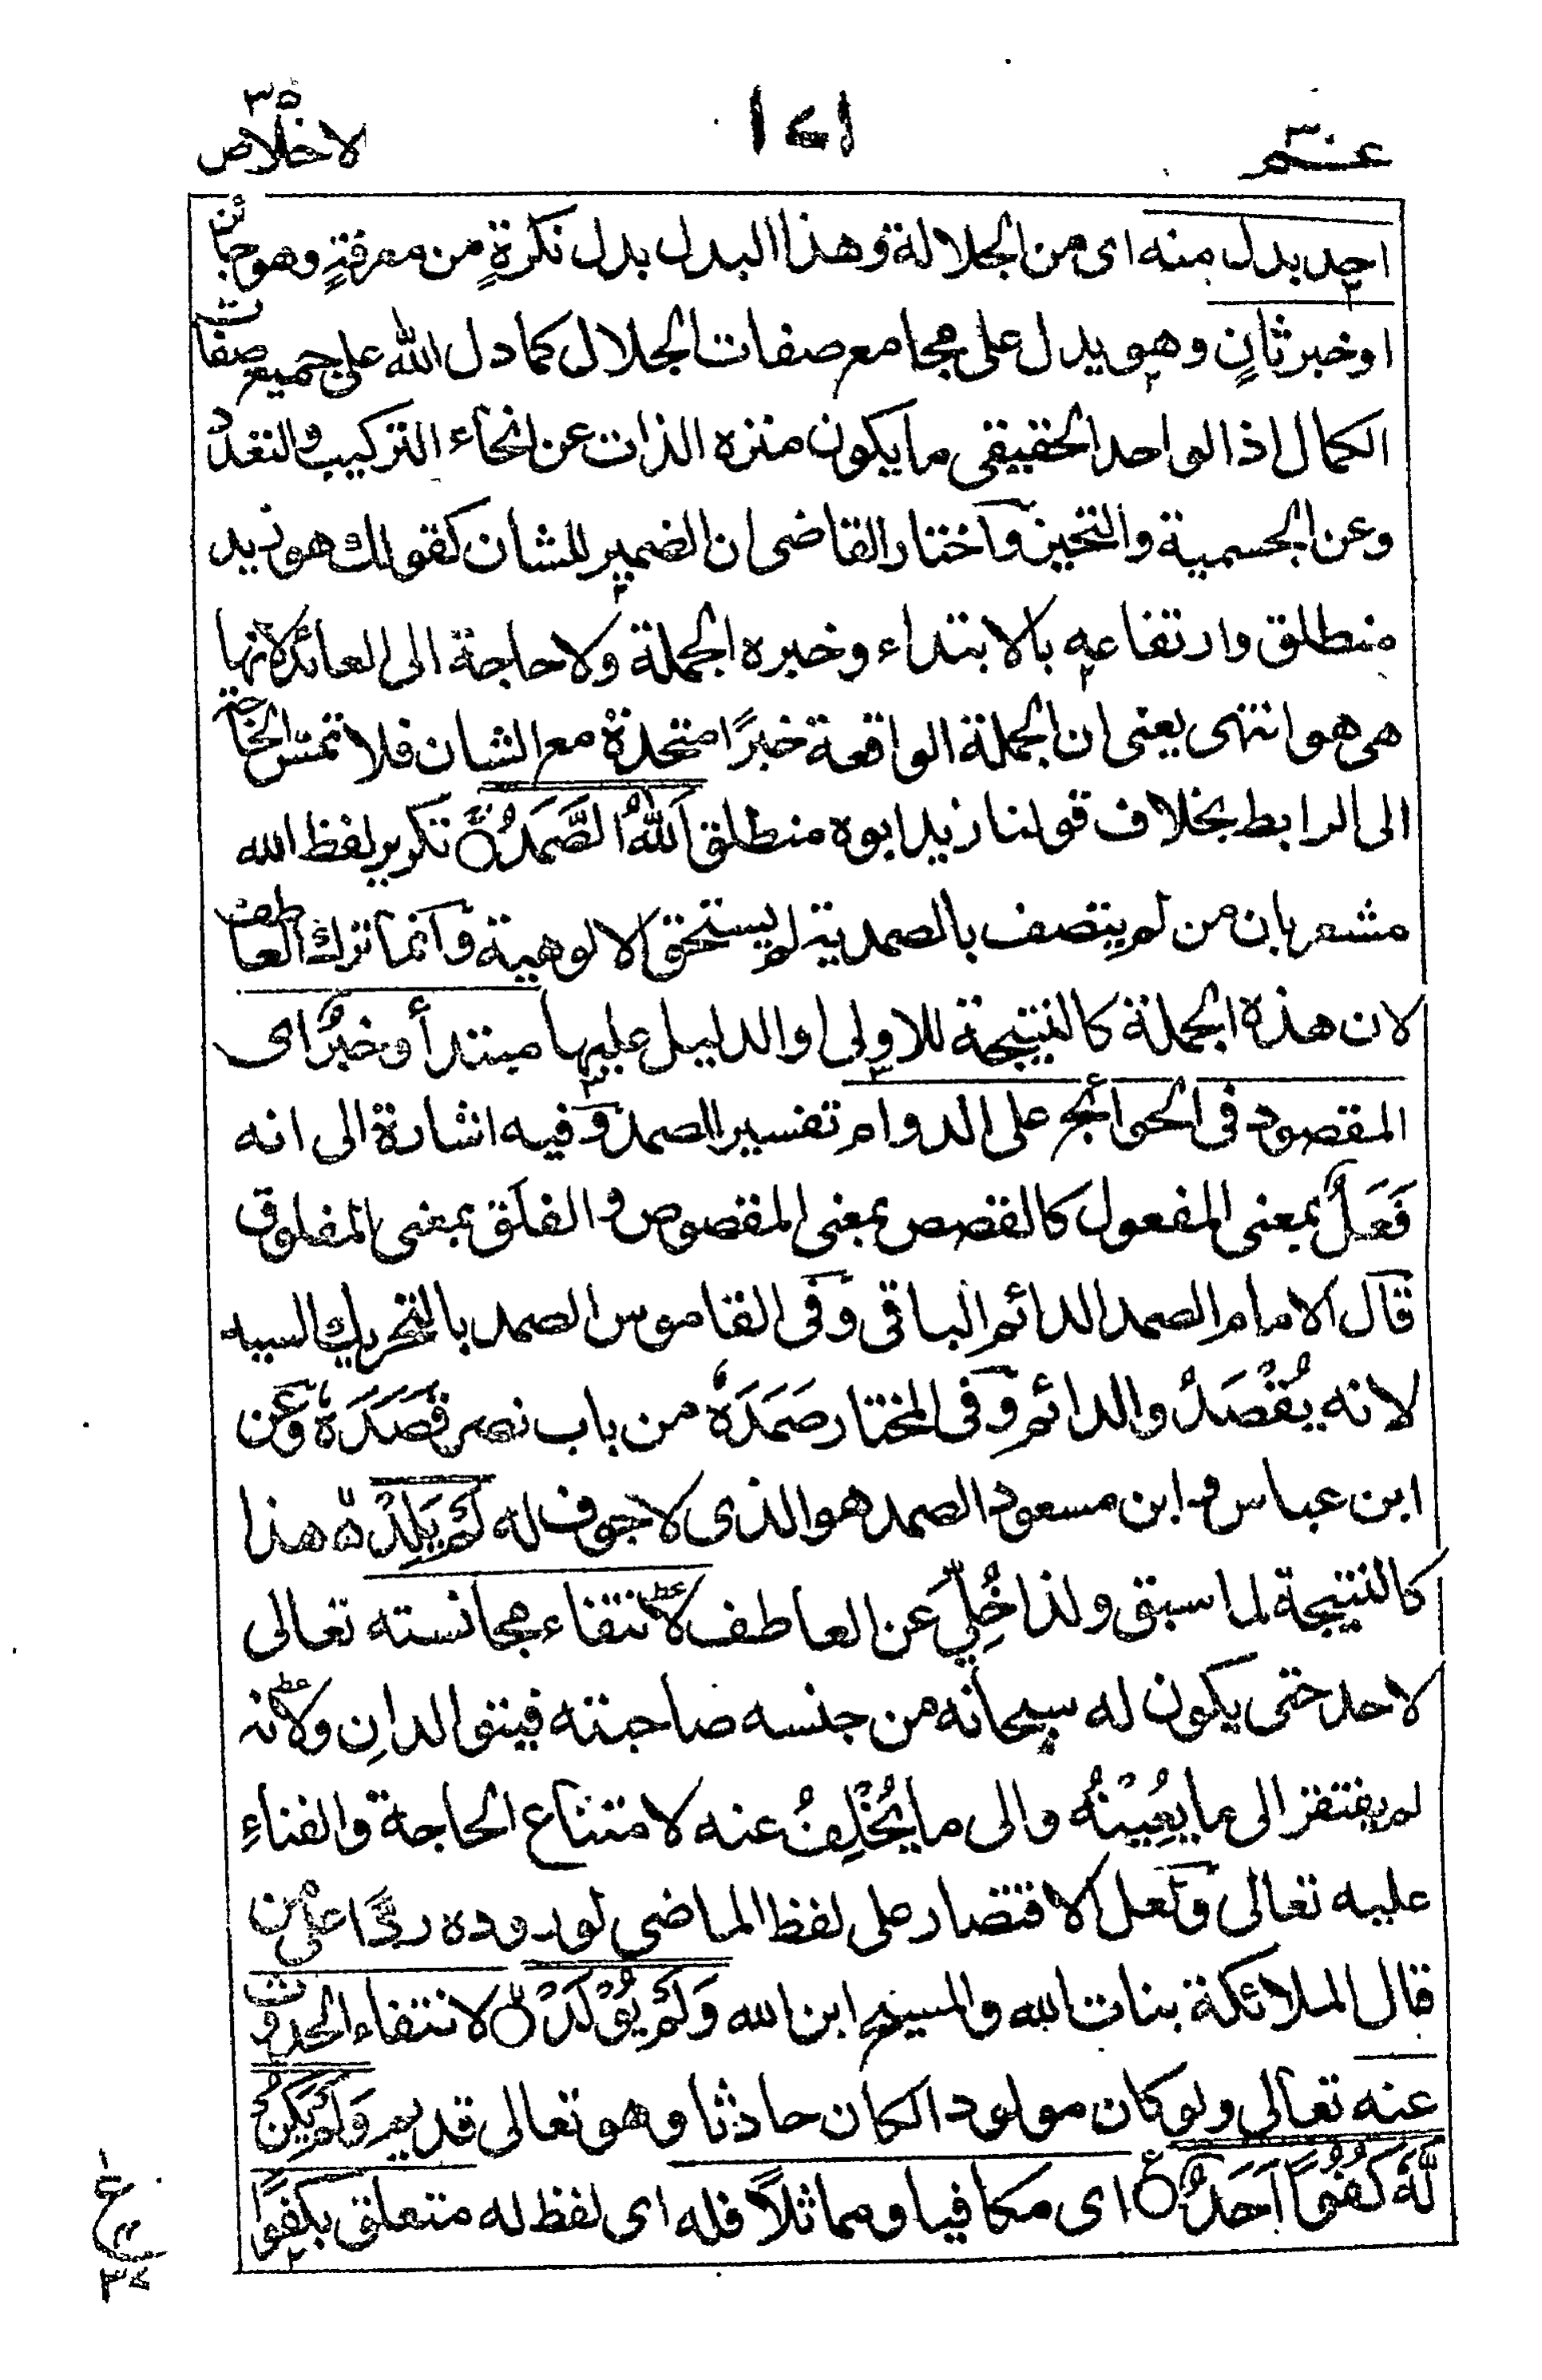 عم ٣٠
١٧١
الاخلاص ٣٥
احد بدل منه اى من الجلالة وهذا البدل بدل نكرةٍ من معرفةٍ وهو جائن
او خبر ثانٍ وهو يدل على مجامع صفات الجلال كما دل الله على جميع صفات
الكمال اذ الواحد الحقيقى ما يكون منزه الذات عن انحاء التركيب والتعدد
وعن الجسمية والتحيز واختار القاضى ان الضمير للشان كقولك هو زيد
منطلق وارتفاعه بالابتداء وخبره الجملة ولا حاجة الى العائد لانها
هى هو انتهى يعنى ان الجملة الواقعة خبرًا متحدة مع الشان فلا تمس الحاجة
الى الرابط بخلاف قولنا زيد ابوه منطلق اَللّٰهُ الصَّمَدُ تكرير لفظ الله
مشعر بان من لم يتصف بالصمدية لم يستحق الالوهية وانما ترك العاطف
لان هذه الجملة كالنتيجة للاولى او الدليل عليها مبتدأ وخبرٌ اى
المقصود فى الحوائج على الدوام تفسير الصمد وفيه اشارة الى انه
فَعَلٌ بمعنى المفعول كالقصص بمعنى المقصوص والفلَق بمعنى المفلوق
قال الامام الصمد الدائم الباقى وفى القاموس الصمد بالتحريك السيد
لانه يُقْصَدُ والدائم وفى المختار صَمَدَهٗ من باب نصر قَصَدَهٗ وعن
ابن عباس وابن مسعود الصمد هو الذى لا جوف له لَمْ يَلِدْ هذا
كالنتيجة لما سبق ولذا خُلِّيَ عن العاطف لانتفاء مجانسته تعالى
لاحد حتى يكون له سبحانه من جنسه صاحبته فيتوالدانِ ولانه
لم يفتقر الى ما يُعِيْنُهٗ والى ما يَخْلِفُ عنه لامتناع الحاجة والفناءِ
عليه تعالى ولعل الاقتصار على لفظ الماضى لوروده ردًّا على من
قال الملائكة بنات الله والمسيح ابن الله وَلَمْ يُوْلَدْ لانتفاء الحدوث
عنه تعالى ولو كان مولودا لكان حادثا وهو تعالى قديم وَلَمْ يَكُنْ
لَّهٗ كُفُوًا اَحَدٌ اى مكافيا ومماثلًا فله اى لفظ له متعلق بكفوًا
ع
٣٧